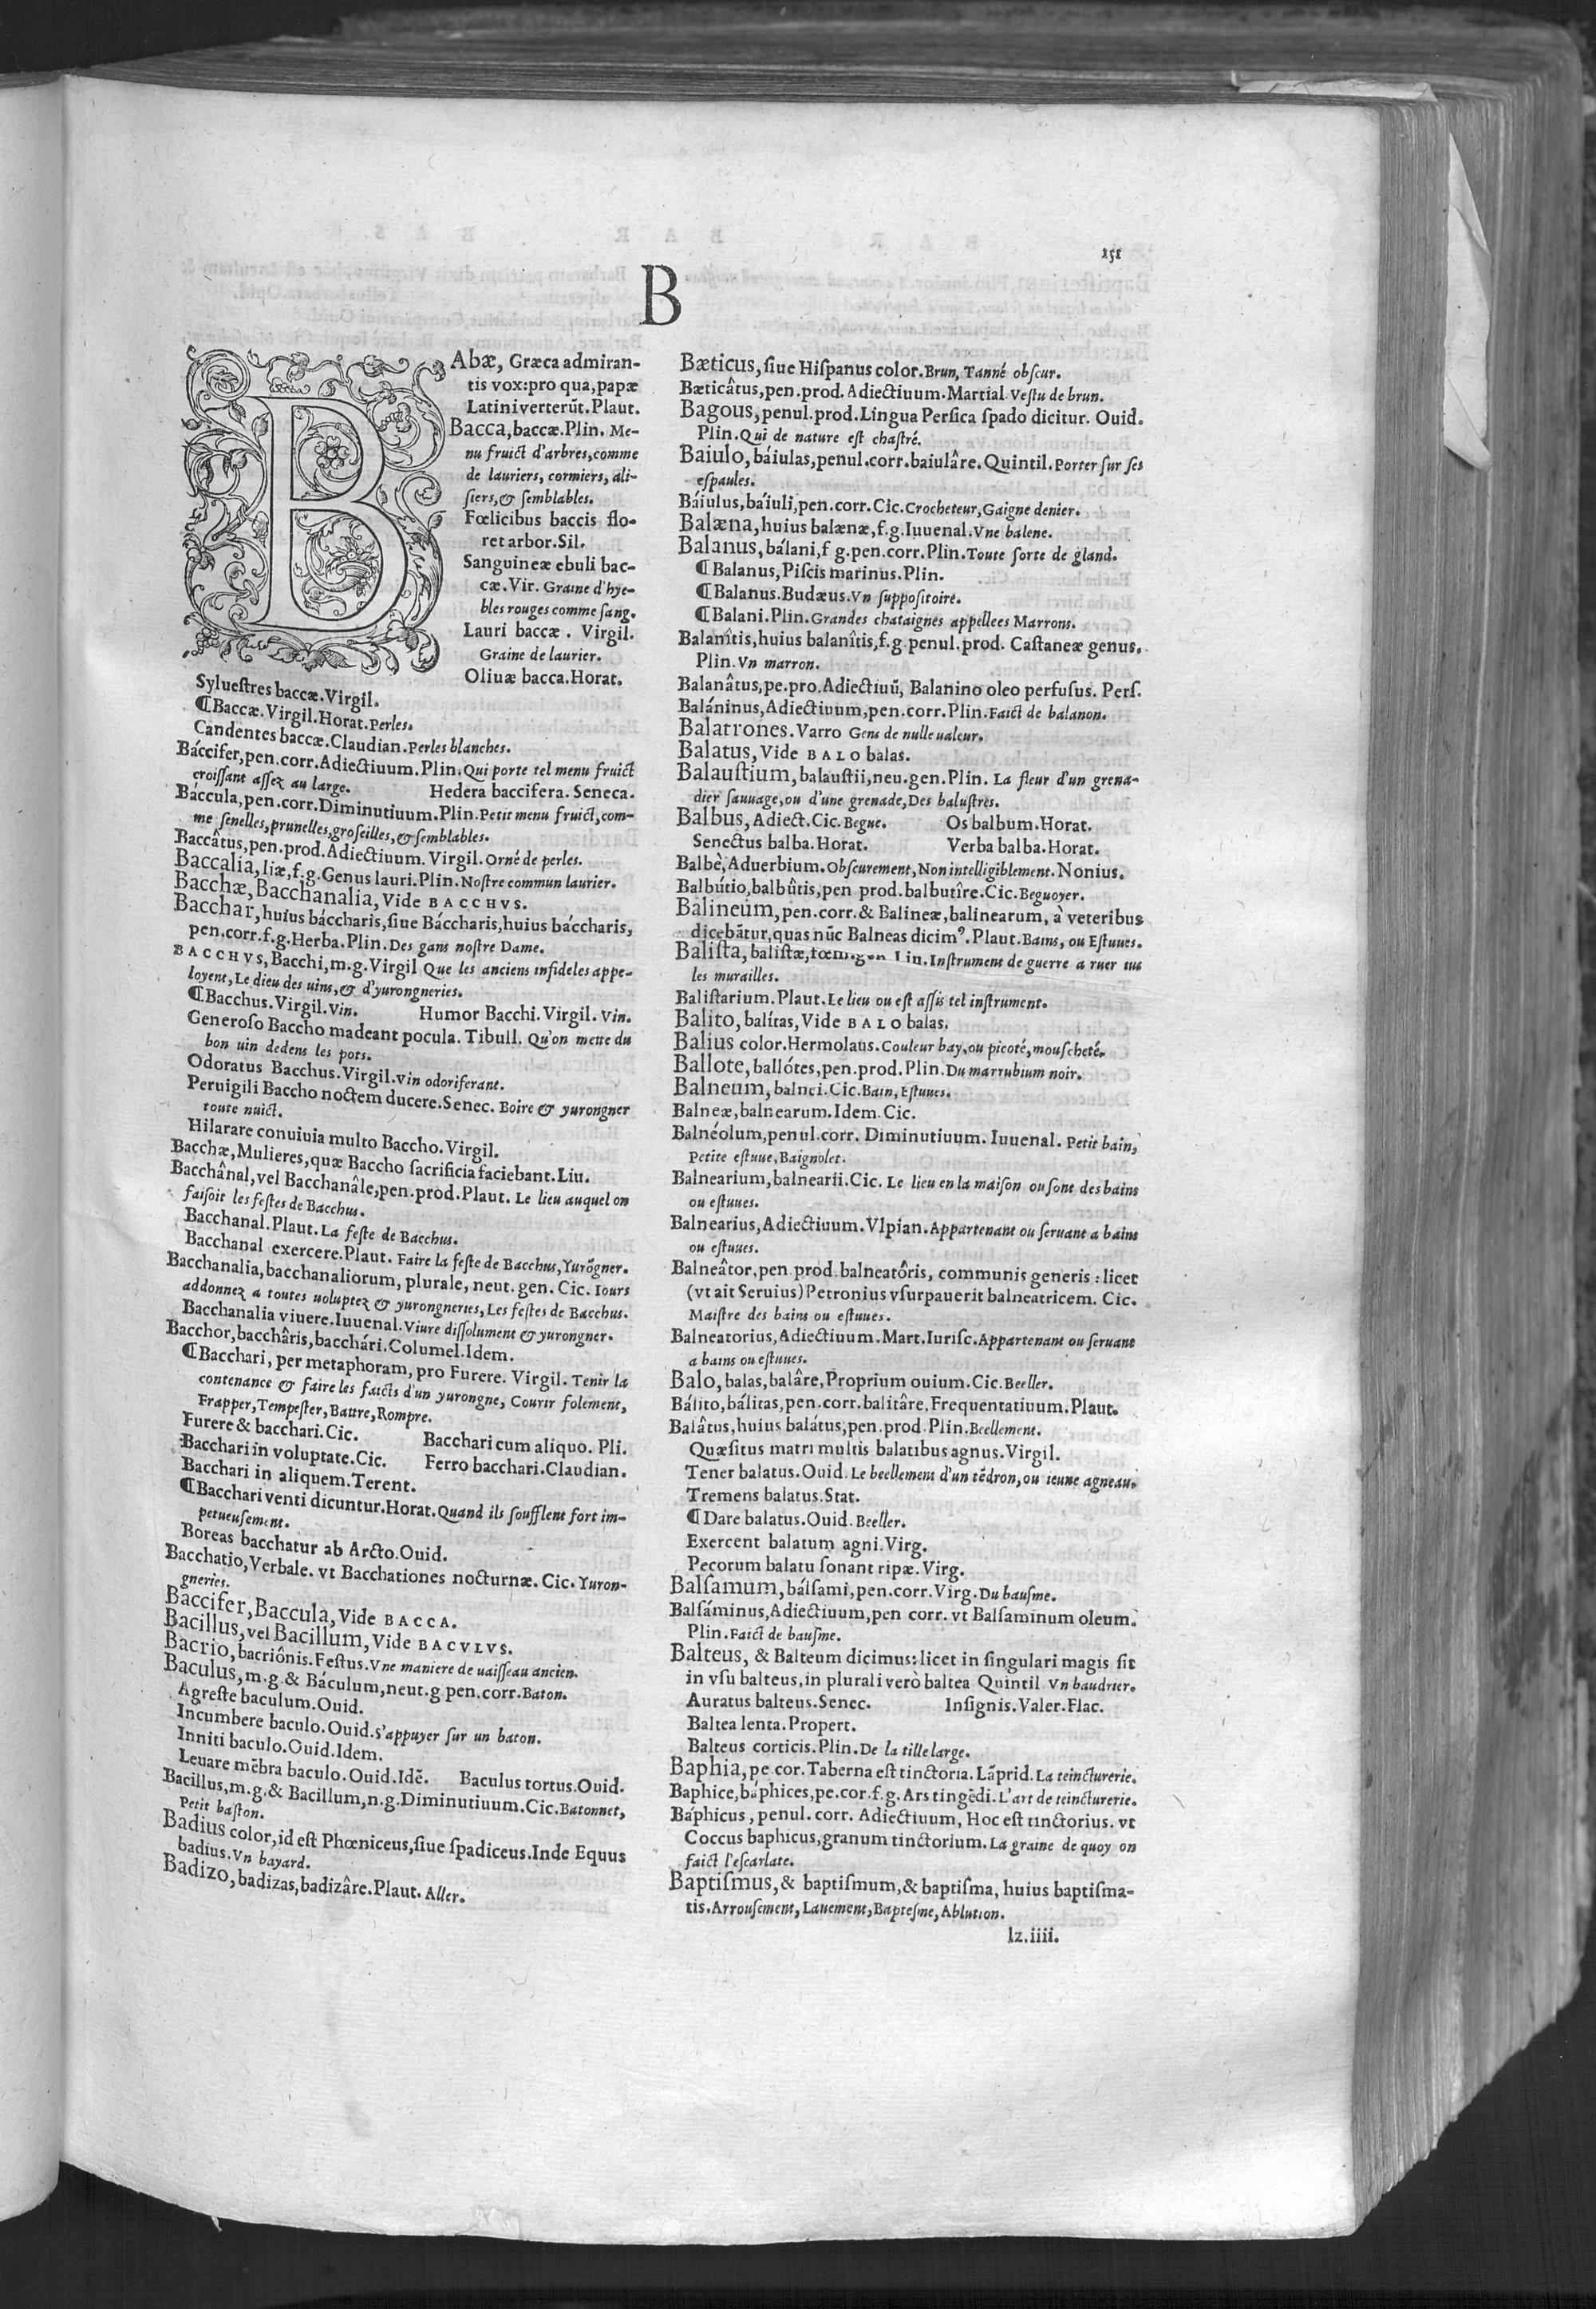 151
B
BAbæ, Græca admiran-
tis vox:pro qua,papæ
Latini verterũt.Plaut.
Bacca,baccæ.Plin. Me-
nu fruict d'arbres,comme
de lauriers, cormiers, ali-
ſiers,& ſemblables.
Fœlicibus baccis flo-
ret arbor.Sil.
Sanguineæ ebuli bac-
cæ.Vir. Graine d'hye-
bles rouges comme ſang.
Lauri baccæ . Virgil.
Graine de laurier.
Oliuæ bacca.Horat.
Sylueſtres baccæ.Virgil.
¶Baccæ.Virgil.Horat.Perles.
Candentes baccæ.Claudian.Perles blanches.
Báccifer,pen.corr.Adiectiuum.Plin.Qui porte tel menu fruict
croiſſant aſſez au large. Hedera baccifera.Seneca.
Báccula,pen.corr.Diminutiuum.Plin.Petit menu fruict,com-
me ſenelles,prunelles,groſeilles,& ſemblables.
Baccâtus,pen.prod.Adiectiuum.Virgil.Orné de perles.
Baccalia,liæ,f.g.Genus lauri.Plin.Noſtre commun laurier.
Bacchæ,Bacchanalia,Vide BACCHVS.
Bacchar,huius báccharis,ſiue Báccharis,huius báccharis,
pen.corr.f.g.Herba.Plin.Des gans noſtre Dame.
BACCHVS,Bacchi,m.g.Virgil Que les anciens infideles appe-
loyent,Le dieu des uins,& d'yurongneries.
¶Bacchus.Virgil.Vin. Humor Bacchi.Virgil.Vin.
Generoſo Baccho madeant pocula.Tibull. Qu'on mette du
bon uin dedens les pots.
Odoratus Bacchus.Virgil.Vin odoriferant.
Peruigili Baccho noctem ducere.Senec. Boire & yurongner
toute nuict.
Hilarare conuiuia multo Baccho.Virgil.
Bacchæ,Mulieres,quæ Baccho ſacrificia faciebant.Liu.
Bacchânal,vel Bacchanâle,pen.prod.Plaut. Le lieu auquel on
faiſoit les feſtes de Bacchus.
Bacchanal.Plaut.La feſte de Bacchus.
Bacchanal exercere.Plaut. Faire la feſte de Bacchus,Yurõgner.
Bacchanalia,bacchanaliorum, plurale, neut.gen. Cic. Iours
addonnez a toutes uoluptez & yurongneries,Les feſtes de Bacchus.
Bacchanalia viuere.Iuuenal.Viure diſſolument & yurongner.
Bacchor,bacchâris,bacchári.Columel.Idem.
¶Bacchari, per metaphoram, pro Furere. Virgil. Tenir la
contenance & faire les faicts d'un yurongne, Courir folement,
Frapper,Tempeſter,Battre,Rompre.
Furere & bacchari.Cic. Bacchari cum aliquo. Pli.
Bacchari in voluptate.Cic. Ferro bacchari.Claudian.
Bacchari in aliquem.Terent.
¶Bacchari venti dicuntur.Horat.Quand ils ſoufflent fort im-
petueuſement.
Boreas bacchatur ab Arcto.Ouid.
Bacchatio,Verbale. vt Bacchationes nocturnæ. Cic. Yuron-
gneries.
Baccifer,Baccula,Vide BACCA.
Bacillus,vel Bacillum,Vide BACVLVS.
Bacrio,bacriônis.Feſtus.Vne maniere de uaiſſeau ancien.
Baculus,m.g.& Báculum,neut.g pen.corr.Baton.
Agreſte baculum.Ouid.
Incumbere baculo.Ouid.S'appuyer ſur un baton.
Inniti baculo.Ouid.Idem.
Leuare mẽbra baculo.Ouid.Idẽ. Baculus tortus.Ouid.
Bacillus,m.g.& Bacillum,n.g.Diminutiuum.Cic.Batonnet,
Petit baſton.
Badius color,id eſt Phœniceus,ſiue ſpadiceus.Inde Equus
badius.Vn bayard.
Badizo,badizas,badizâre.Plaut.Aller.
Bæticus,ſiue Hiſpanus color.Brun, Tanné obſcur.
Bæticâtus,pen.prod.Adiectiuum.Martial.Veſtu de brun.
Bagous,penul.prod.Lingua Perſica ſpado dicitur. Ouid.
Plin.Qui de nature eſt chaſtré.
Baiulo,báiulas,penul.corr.baiulâre.Quintil.Porter ſur ſes
eſpaules.
Báiulus,báiuli,pen.corr.Cic.Crocheteur,Gaigne denier.
Balæna,huius balænæ,f.g.Iuuenal.Vne balene.
Balanus,bálani,f g.pen.corr.Plin.Toute ſorte de gland.
¶Balanus,Piſcis marinus.Plin.
¶Balanus.Budæus.Vn ſuppoſitoire.
¶Balani.Plin.Grandes chataignes appellees Marrons.
Balanîtis,huius balanîtis,f.g.penul.prod. Caſtaneæ genus.
Plin.Vn marron.
Balanâtus,pe.pro.Adiectiuũ, Balanino oleo perfuſus. Perſ.
Baláninus,Adiectiuum,pen.corr.Plin.Faict de balanon.
Balatrones.Varro Gens de nulle ualeur.
Balatus,Vide BALO balas.
Balauſtium,balauſtii,neu.gen.Plin. La fleur d'un grena-
dier ſauuage,ou d'une grenade,Des baluſtres.
Balbus,Adiect.Cic.Begue. Os balbum.Horat.
Senectus balba.Horat. Verba balba.Horat.
Balbè,Aduerbium.Obſcurement,Non intelligiblement.Nonius.
Balbútio,balbûtis,pen prod.balbutîre.Cic.Beguoyer.
Balineum,pen.corr.& Balineæ,balinearum, à veteribus
dicebãtur,quas nũc Balneas dicimꝰ.Plaut.Bains, ou Eſtuues.
Baliſta, baliſtæ,fœm.gen Liu.Inſtrument de guerre a ruer ius
les murailles.
Baliſtarium.Plaut.Le lieu ou eſt aſſis tel inſtrument.
Balito,balítas,Vide BALO balas.
Balius color.Hermolaus.Couleur bay,ou picoté,mouſcheté.
Ballote,ballótes,pen.prod.Plin.Du marrubium noir.
Balneum,balnei.Cic.Bain,Eſtuues.
Balneæ,balnearum.Idem.Cic.
Balnéolum,penul.corr. Diminutiuum. Iuuenal. Petit bain,
Petite eſtuue,Baignolet.
Balnearium,balnearii.Cic. Le lieu en la maiſon ou ſont des bains
ou eſtuues.
Balnearius,Adiectiuum.Vlpian.Appartenant ou ſeruant a bains
ou eſtuues.
Balneâtor,pen prod.balneatôris, communis generis : licet
(vt ait Seruius) Petronius vſurpauerit balneatricem. Cic.
Maiſtre des bains ou eſtuues.
Balneatorius,Adiectiuum.Mart.Iuriſc.Appartenant ou ſeruant
a bains ou eſtuues.
Balo, balas,balâre,Proprium ouium.Cic.Beeller.
Bálito,bálitas,pen.corr.balitâre,Frequentatiuum.Plaut.
Balâtus,huius balátus,pen.prod.Plin.Beellement.
Quæſitus matri multis balatibus agnus.Virgil.
Tener balatus.Ouid.Le beellement d'un tẽdron,ou ieune agneau.
Tremens balatus.Stat.
¶Dare balatus.Ouid.Beeller.
Exercent balatum agni.Virg.
Pecorum balatu ſonant ripæ.Virg.
Balſamum,bálſami,pen.corr.Virg.Du bauſme.
Balſáminus,Adiectiuum,pen corr. vt Balſaminum oleum.
Plin.Faict de bauſme.
Balteus, & Balteum dicimus: licet in ſingulari magis ſit
in vſu balteus,in plurali verò baltea Quintil Vn baudrier.
Auratus balteus.Senec. Inſignis.Valer.Flac.
Baltea lenta.Propert.
Balteus corticis.Plin.De la tille large.
Baphia,pe cor.Taberna eſt tinctoria. Lãprid.La teincturerie.
Baphice,báphices,pe.cor.f.g.Ars tingẽdi.L'art de teincturerie.
Báphicus, penul. corr. Adiectiuum, Hoc eſt tinctorius. vt
Coccus baphicus,granum tinctorium. La graine de quoy on
faict l'eſcarlate.
Baptiſmus,& baptiſmum,& baptiſma, huius baptiſma-
tis.Arrouſement,Lauement,Bapteſme,Ablution.
lz.iiii.